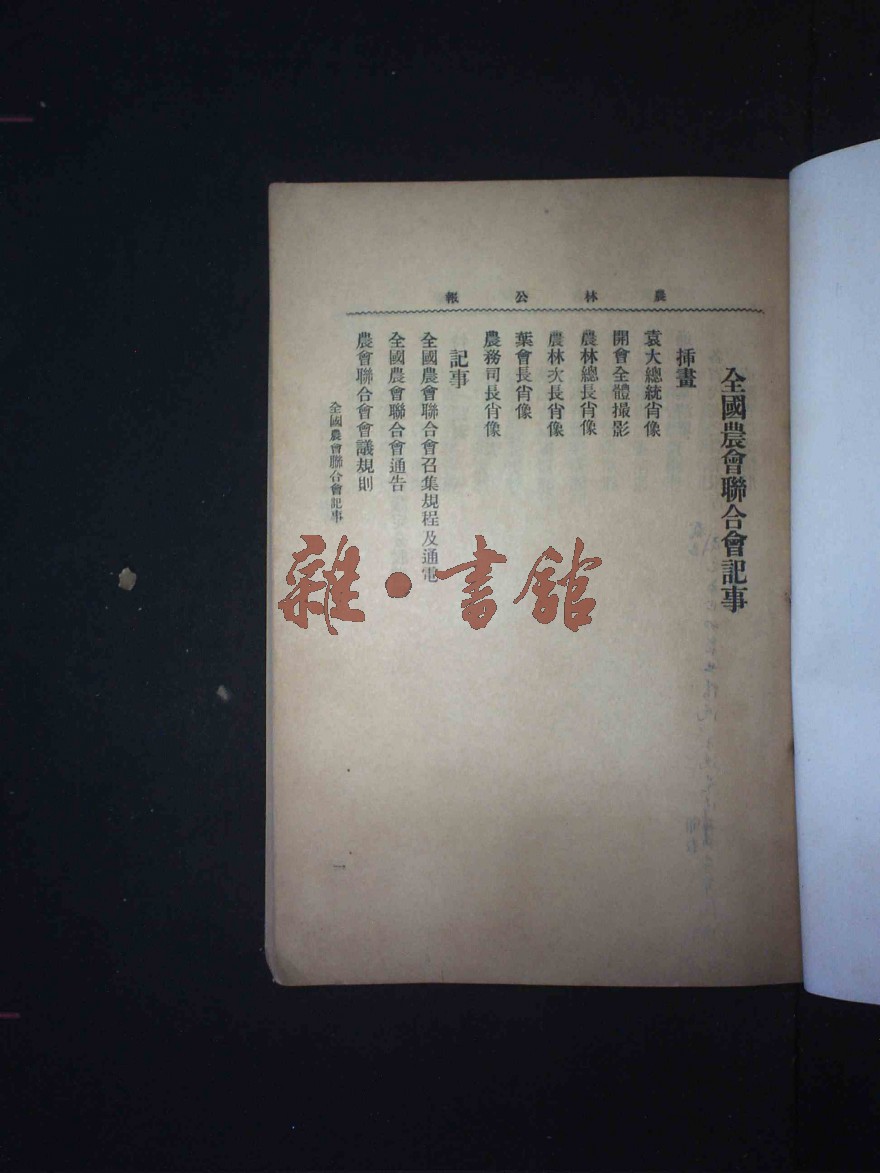 農林公報
全國農會聯合會記事
插畫
袁大總統肖像
開會全體撮影
農林總長肖像
農林次長肖像
葉會長肖像
農務司長肖像
記事
全國農會聯合會召集規程及通電
全國農會聯合會通告
農會聯合會會議規則
全國農會聯合會記事
一
雜·書館